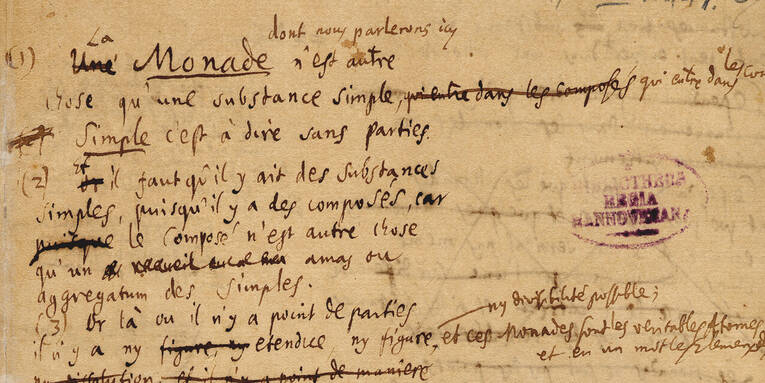 La dont nous parlerons icy
(1) Une Monade n'est autre
chose qu'une substance simple, qui entre dans les composés qui entre dans les com
Simple c'est à dire sans parties.
(2) Et il faut qu'il y ait des substances
simples, puisqu'il y a des composés, car
puisque le composé n'est autre chose
qu'un recueil amas ou
aggregatum des simples.
(3) Or là ou il n'y a point de parties
ny divisibilité possible;
il n'y a ny figure, ny etendue, ny figure, et ces Monades sont les veritables Atomes
et en un mot les Elemens
ny dissolution, et il n'y a point de maniere
BIBLIOTHECA
REGIA
HANNOVERANA